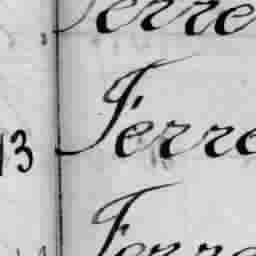 Ferre
13 Ferre
Ferre